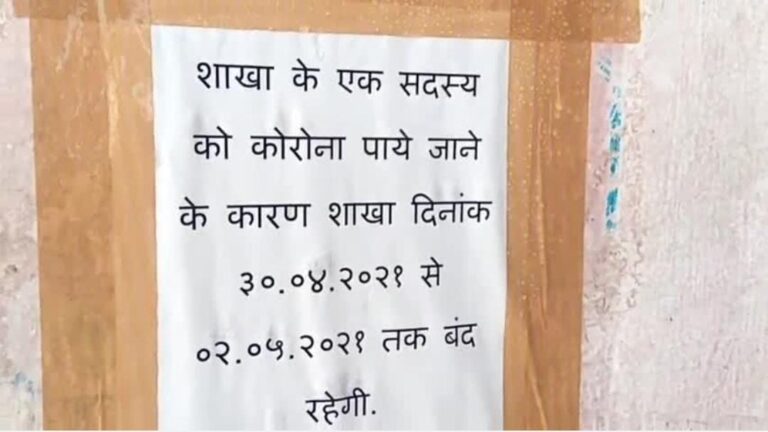 शाखा के एक सदस्य
को कोरोना पाये जाने
के कारण शाखा दिनांक
३०.०४.२०२१ से
०२.०५.२०२१ तक बंद
रहेगी.